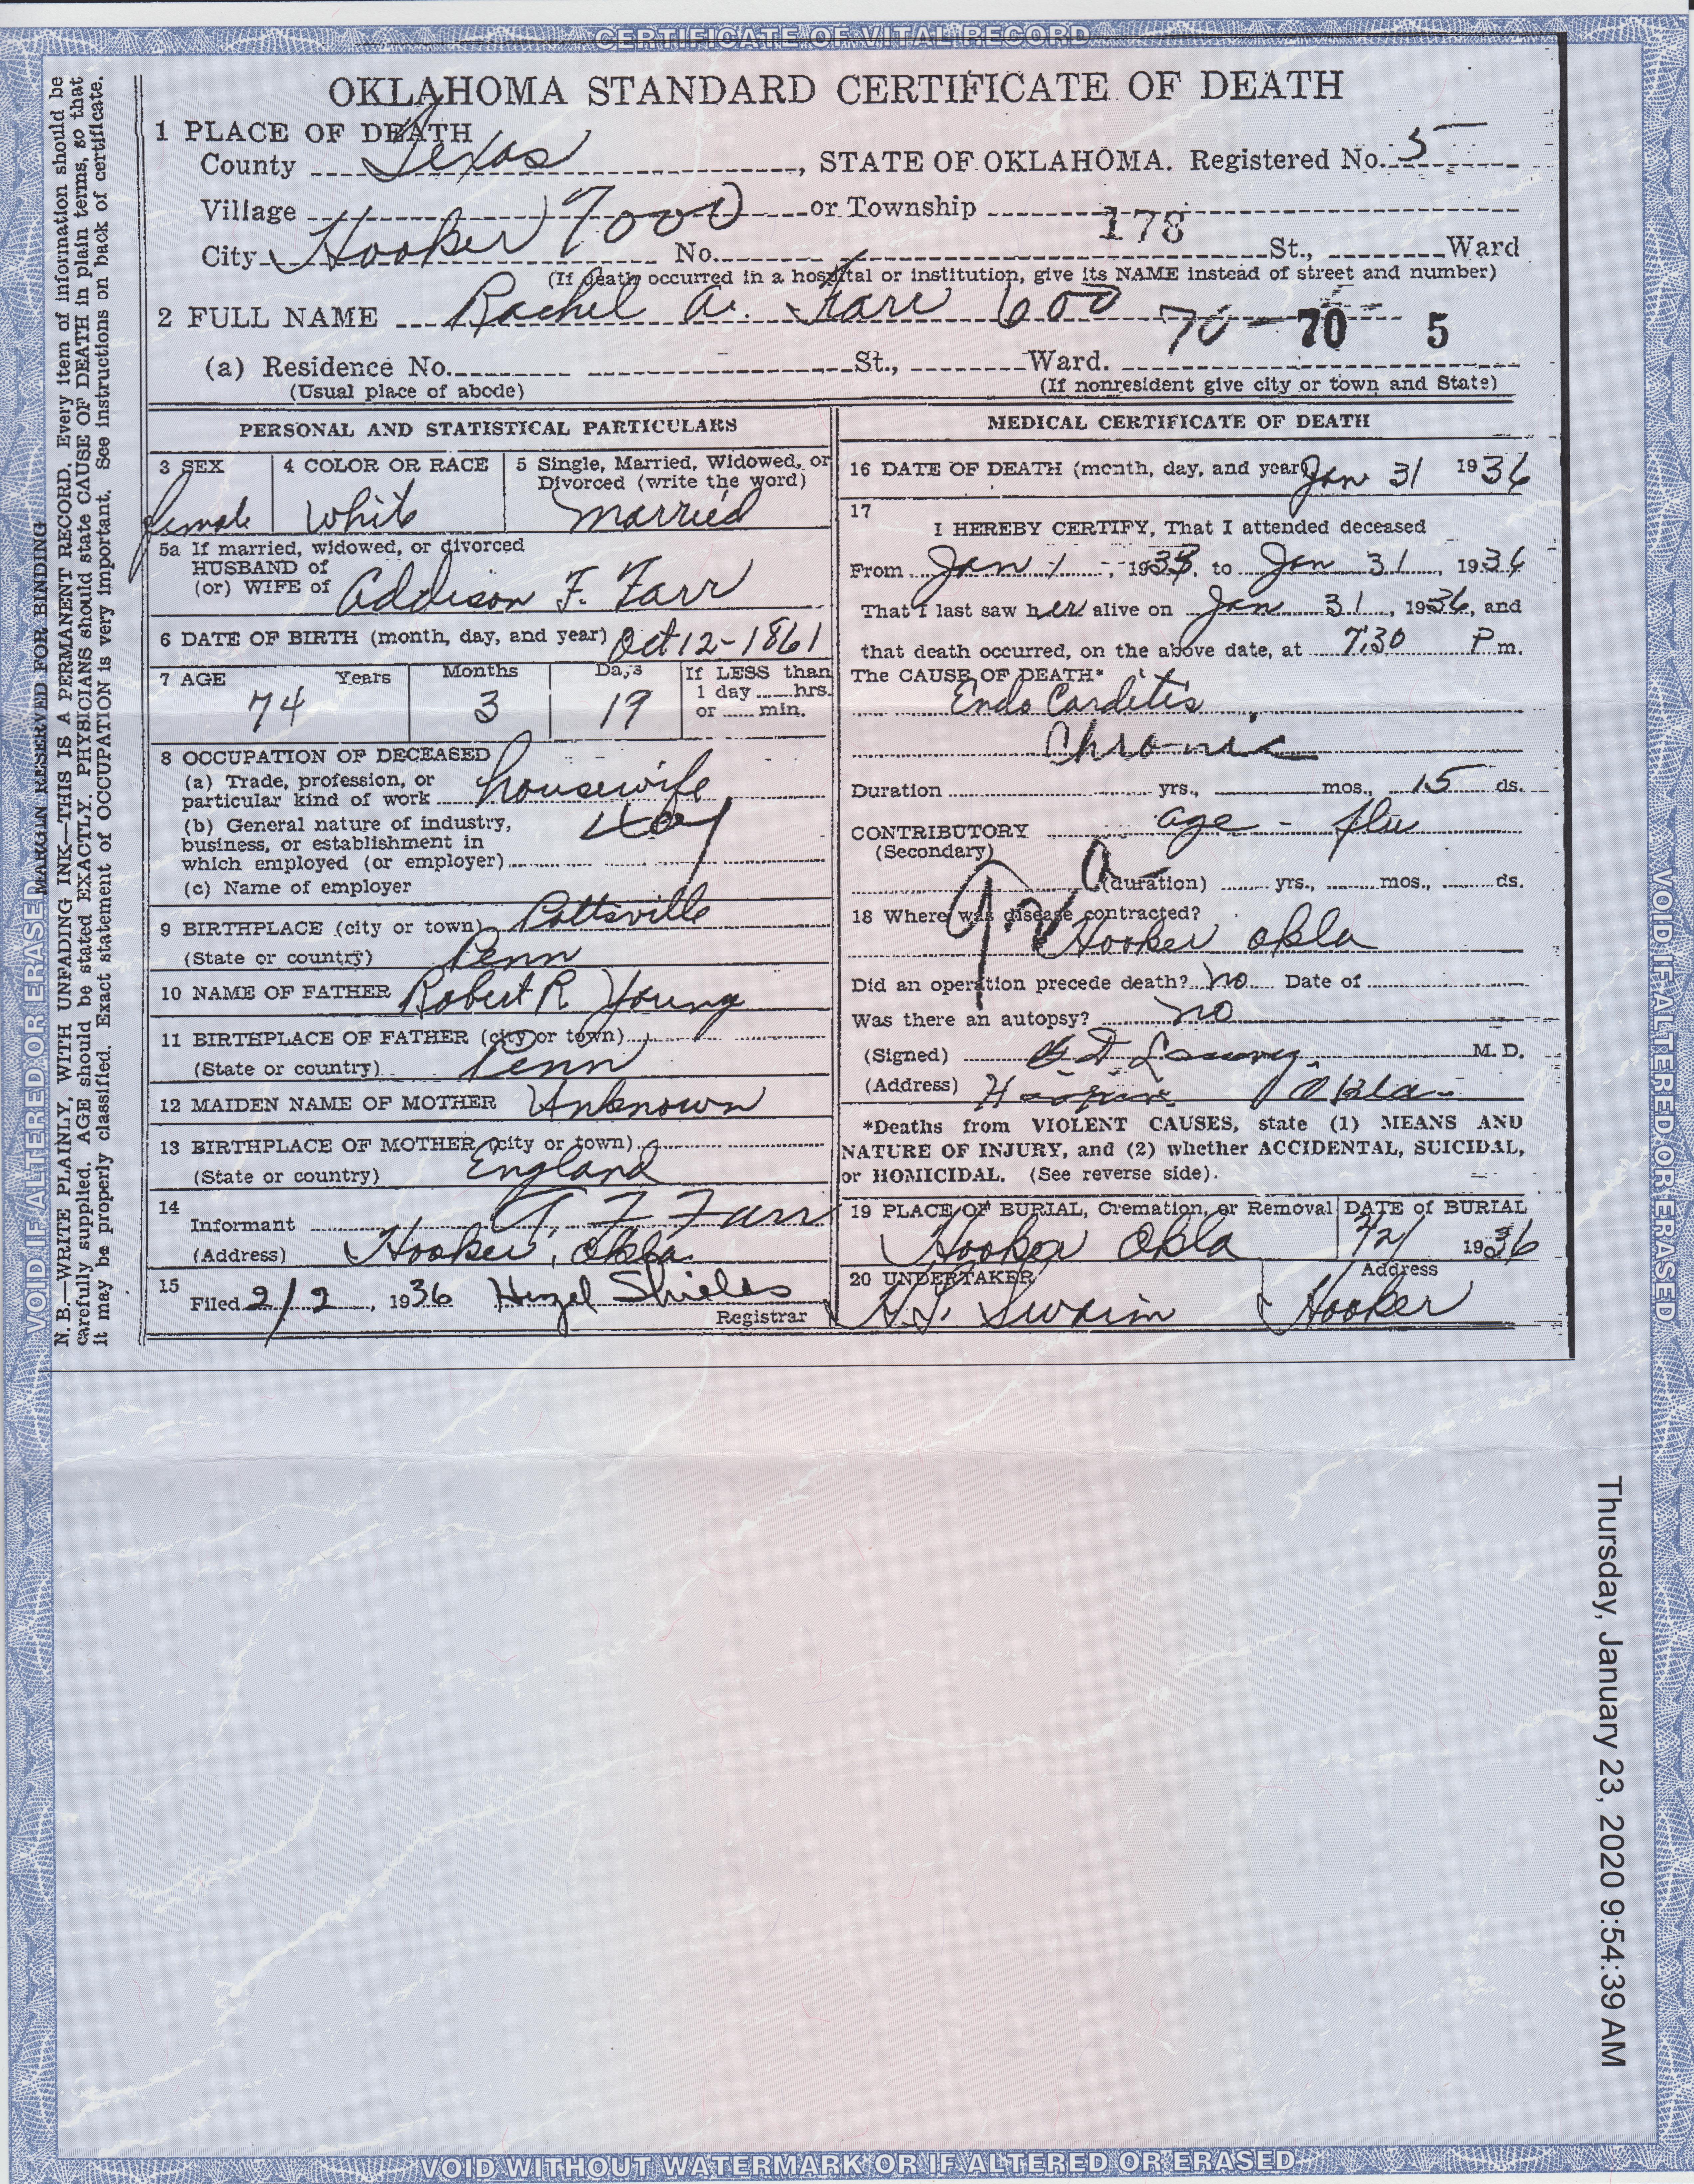 CERTIFICATE OF VITAL RECORD
OKLAHOMA STANDARD CERTIFICATE OF DEATH
1 PLACE OF DEATH
County Texas, STATE OF OKLAHOMA. Registered No. 5
Village 7000 or Township 178
City Hooker No. St., Ward
(If death occurred in a hospital or institution, give its NAME instead of street and number)
2 FULL NAME Rachel A. Farr 600 70 - 70 5
(a) Residence No. St., Ward.
(Usual place of abode) (If nonresident give city or town and State)
PERSONAL AND STATISTICAL PARTICULARS
3 SEX 4 COLOR OR RACE 5 Single, Married, Widowed, or
Divorced (write the word)
female White Married
5a If married, widowed, or divorced
HUSBAND of
(or) WIFE of Addison F. Farr
6 DATE OF BIRTH (month, day, and year) Oct 12-1861
7 AGE Years Months Days If LESS than
1 day hrs.
74 3 19 or min.
8 OCCUPATION OF DECEASED
(a) Trade, profession, or
particular kind of work housewife
(b) General nature of industry,
business, or establishment in
which employed (or employer)
(c) Name of employer
9 BIRTHPLACE (city or town) Pottsville
(State or country) Penn
10 NAME OF FATHER Robert R Young
11 BIRTHPLACE OF FATHER (city or town)
(State or country) Penn
12 MAIDEN NAME OF MOTHER Unknown
13 BIRTHPLACE OF MOTHER (city or town)
(State or country) England
14
Informant A F Farr
(Address) Hooker, Okla.
15
Filed 2/2, 1936 Hazel Shields
Registrar
MEDICAL CERTIFICATE OF DEATH
16 DATE OF DEATH (month, day, and year) Jan 31 1936
17
I HEREBY CERTIFY, That I attended deceased
From Jan 1, 1933, to Jan 31, 1936
That I last saw her alive on Jan 31, 1936, and
that death occurred, on the above date, at 7:30 P m.
The CAUSE OF DEATH*
Endo Carditis
Chronic
Duration yrs., mos., 15 ds.
CONTRIBUTORY age - flu
(Secondary)
(duration) yrs., mos., ds.
18 Where was disease contracted?
Hooker Okla
Did an operation precede death? no Date of
Was there an autopsy? no
(Signed) M. D.
(Address) Okla
*Deaths from VIOLENT CAUSES, state (1) MEANS AND
NATURE OF INJURY, and (2) whether ACCIDENTAL, SUICIDAL,
or HOMICIDAL. (See reverse side).
19 PLACE OF BURIAL, Cremation, or Removal DATE of BURIAL
Hooker Okla 2/2/ 1936
20 UNDERTAKER Address
Swaim Hooker
MARGIN RESERVED FOR BINDING
N. B.—WRITE PLAINLY, WITH UNFADING INK—THIS IS A PERMANENT RECORD. Every item of information should be
carefully supplied. AGE should be stated EXACTLY. PHYSICIANS should state CAUSE OF DEATH in plain terms, so that
it may be properly classified. Exact statement of OCCUPATION is very important. See instructions on back of certificate.
VOID IF ALTERED OR ERASED
VOID IF ALTERED OR ERASED
Thursday, January 23, 2020 9:54:39 AM
VOID WITHOUT WATERMARK OR IF ALTERED OR ERASED